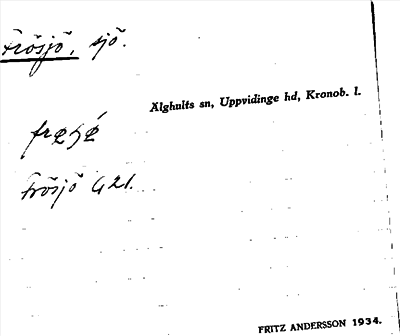 Frösjö, sjö.
Älghults sn, Uppvidinge hd, Kronob. l.
Frösjö G 21.
FRITZ ANDERSSON 1934.